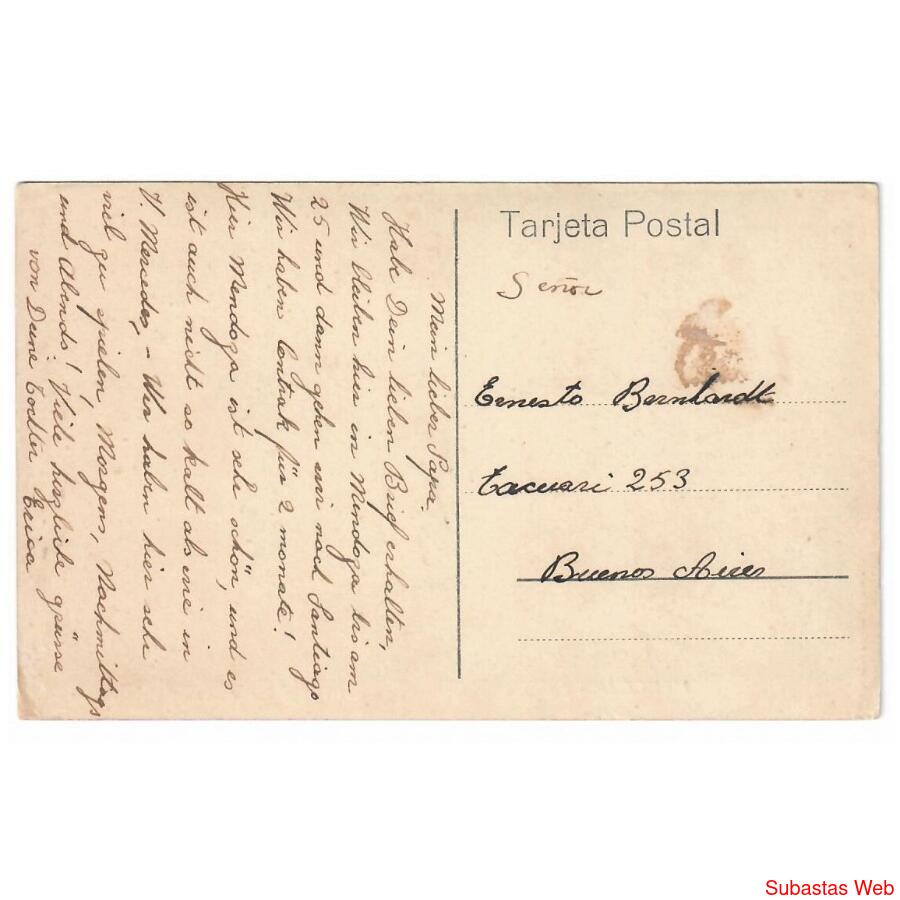 Mein lieber Papa.
Habe Dein lieben Brief erhalten,
Wir bleiben hier in Mendoga bis am
25 und dann gehen wir nach Santiago
Wir haben Contrak für 2 monate!
Hier Mendoga ist sehr schön, und es
ist auch nicht so kalt als wie in
V. Mercedes, - Wir haben hier sehr
viel zu spielen, Morgens, Nachmittags
und Abends! Viele herzliche grüsse
von Deine Tochter Erica
Tarjeta Postal
Señor
Ernesto Bernhardt
Tacuari 253
Buenos Aires
Subastas Web